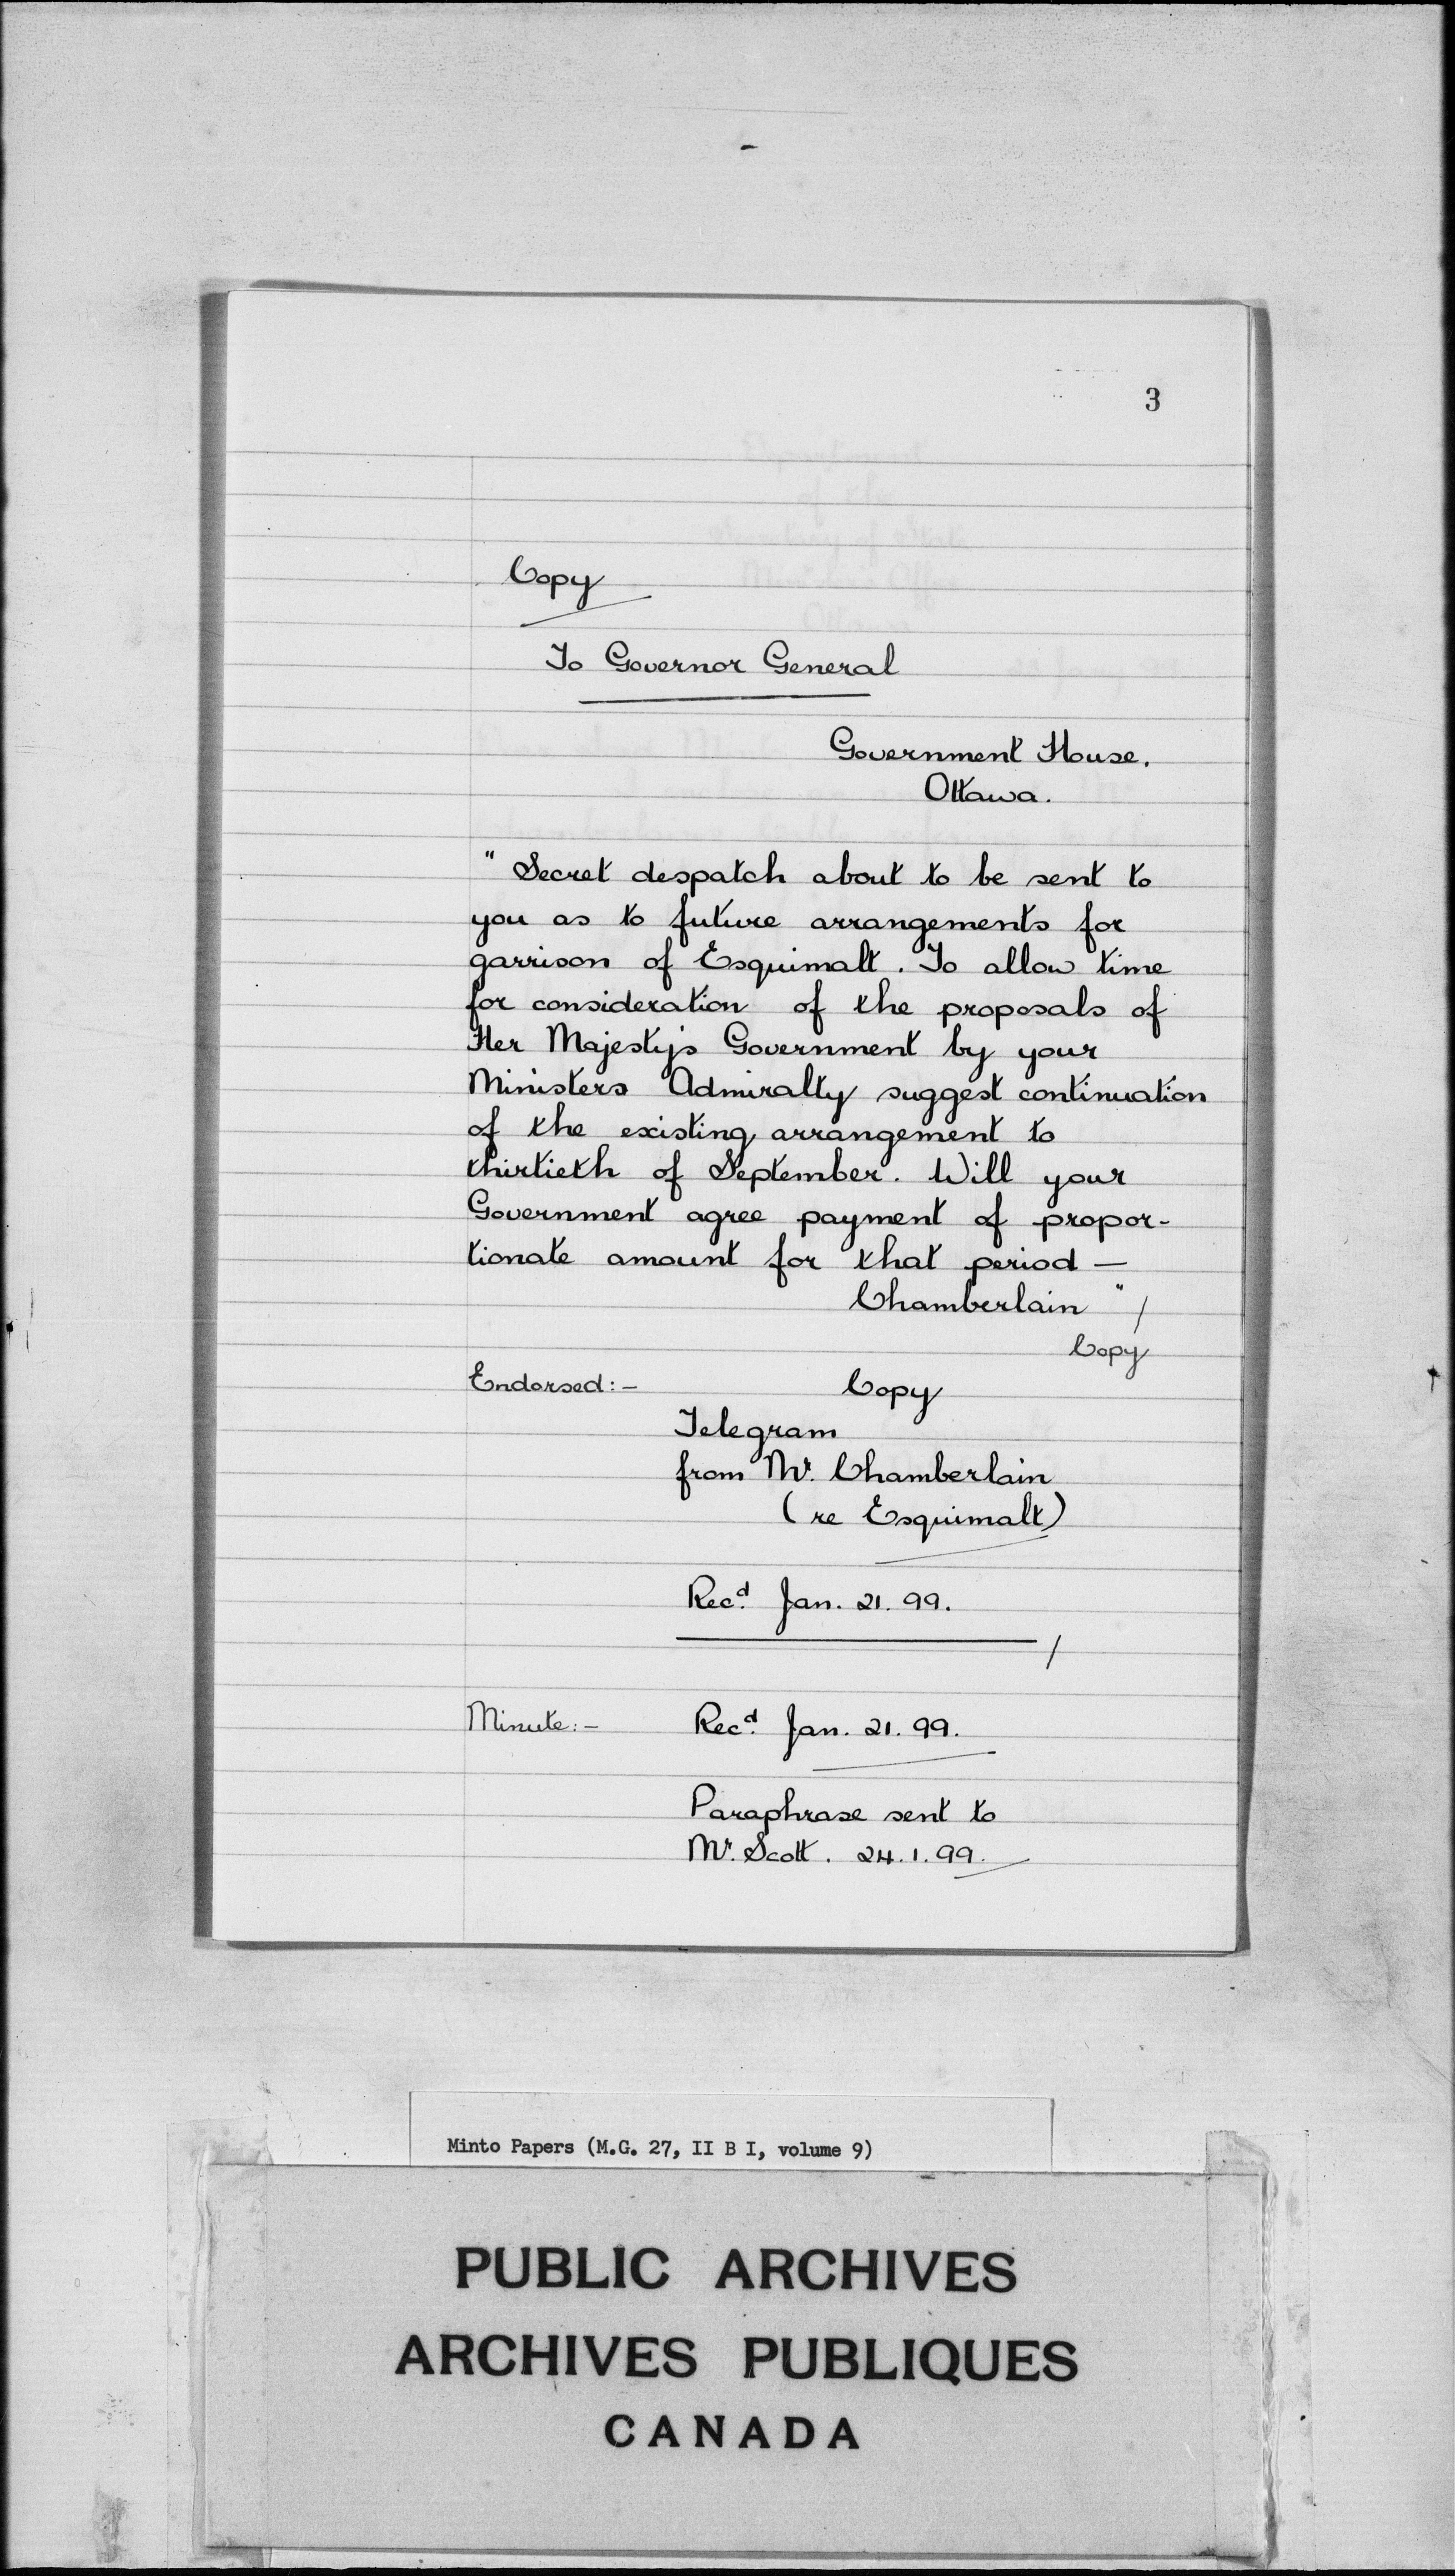 3
Copy
To Governor General
Government House.
Ottawa.
" Secret despatch about to be sent to
you as to future arrangements for
garrison of Esquimalt. To allow time
for consideration of the proposals of
Her Majesty's Government by your
Ministers Admiralty suggest continuation
of the existing arrangement to
thirtieth of September. Will your
Government agree payment of propor-
tionate amount for that period —
Chamberlain " /
Copy
Endorsed:- Copy
Telegram
from Mr. Chamberlain
(re Esquimalt)
Recd. Jan. 21. 99.
/
Minute:- Recd. Jan. 21. 99.
Paraphrase sent to
Mr. Scott. 24.1.99.
Minto Papers (M.G. 27, II B I, volume 9)
PUBLIC ARCHIVES
ARCHIVES PUBLIQUES
CANADA